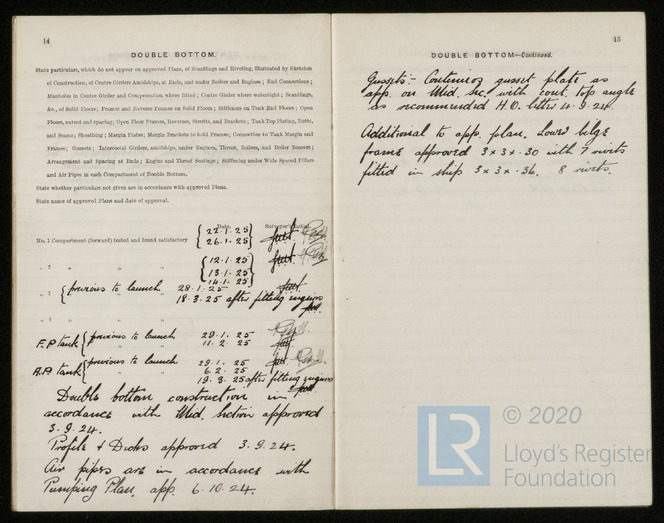 14
DOUBLE BOTTOM.
State particulars, which do not appear on approved Plans, of Scantlings and Riveting, illustrated by Sketches
of Construction, of Centre Girders Amidships, at Ends, and under Boilers and Engines; End Connections;
Manholes in Centre Girder and Compensation where fitted; Centre Girder where watertight; Scantlings,
&c., of Solid Floors; Frames and Reverse Frames on Solid Floors; Stiffeners on Tank End Floors; Open
Floors, extent and spacing; Open Floor Frames, Reverses, Struts, and Brackets; Tank Top Plating, Butts,
and Seams; Sheathing; Margin Plates; Margin Brackets to hold Frames; Connection to Tank Margin and
Frames; Gussets; Intercostal Girders, amidships, under Engines, Thrust, Boilers, and Boiler Bearers;
Arrangement and Spacing at Ends; Engine and Thrust Seatings; Stiffening under Wide Spaced Pillars
and Air Pipes in each Compartment of Double Bottom.
State whether particulars not given are in accordance with approved Plans.
State name of approved Plans and date of approval.
Date.
No. 1 Compartment (forward) tested and found satisfactory 22.1.25
26.1.25
„ 2 „ „ „ 12.1.25
13.1.25
14.1.25
„ 3 previous to launch 28.1.25
18.3.25 after fitting engines
„ 4 „ „ „
F.P tank previous to launch 29.1.25
11.2.25
A.P. tank previous to launch 29.1.25
6.2.25
19.3.25 after fitting engines
Double bottom construction in
accordance with Mid. Section approved
3.9.24.
Profile & Decks approved 3.9.24.
Air pipes are in accordance with
Pumping Plan, app. 6.10.24.
15
DOUBLE BOTTOM—Continued.
Gussets:- Continuous gusset plate as
app. on Mid. Sec. with cont. top angle
as recommended H.O. letter 4.9.24.
Additional to app. plan. Lower bilge
frame approved 3 x 3 x .30 with 7 rivets
fitted in ship 3 x 3 x .36. 8 rivets.
LR
© 2020
Lloyd's Register
Foundation